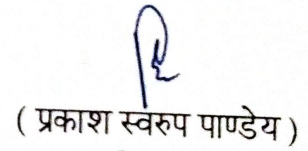 ( प्रकाश स्वरुप पाण्डेय )